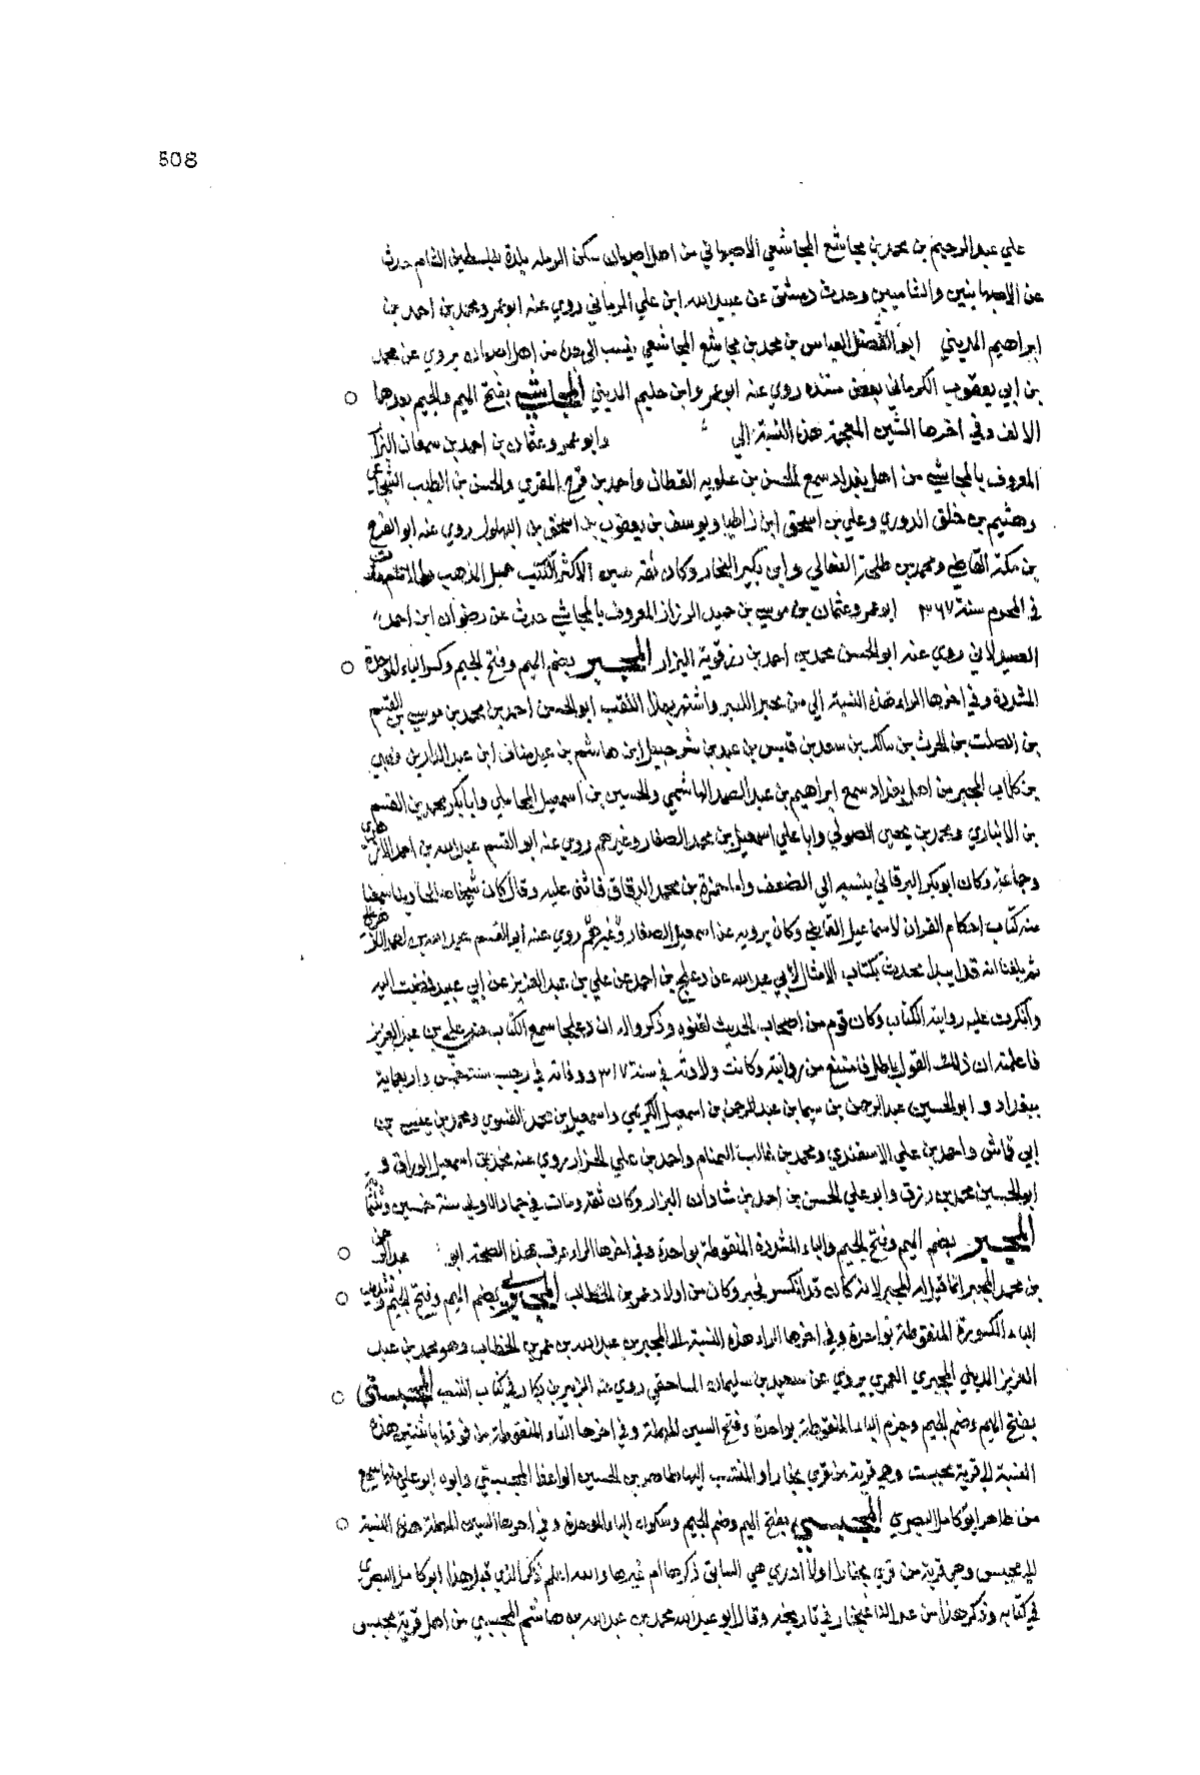 508
علي عبد الرحيم بن محمد بن مجاشع المجاشعي الاصبهاني من اهل اصبهان سكن الرمله بلدة بفلسطين الشام حدث
عن الاصبهانيين والشاميين وحدث دمشق عن عبيد الله ابن علي الرماني روي عنه ابو عمرو محمد بن احمد بن
ابراهيم المديني ابو الفضل العباس بن محمد بن مجاشع المجاشعي ينسب الي جده من اهل اصبهان يروي عن محمد
بن ابي يعقوب الكرماني بعض مسنده روي عنه ابو عمرو ابن حليم المديني المجاشي بفتح الميم والجيم بعدها
الالف وفي اخرها الشين المعجمة هذه النسبة الي وابو عمرو عثمان بن احمد بن سمعان
المعروف بالمجاشي من اهل بغداد سمع الحسن بن علويه القطان واحمد بن فرح المقري والحسن بن الطيب الشجاعي
وهثيم بن خلف الدوري وعلي بن اسحق ابن زاطيا ويوسف بن يعقوب بن اسحق بن البهلول روي عنه ابو الفرج
بن القاضي ومحمد بن طلحة النعالي وابن بكير النجار وكان ثقة الكتب جميل الذهب
في المحرم سنة ٣٦٧ ابو عمرو عثمان بن موسي بن حميد الرزاز المعروف بالمجاشي حدث عن رضوان ابن احمد
الصيدلاني روي عنه ابو الحسن محمد بن احمد بن رزقوية البزار المجبر بضم الميم وفتح الجيم وكسر الباء الموحدة
المشددة وفي اخرها الراء هذه النسبة الي من يجبر الكسر واشتهر بهذا اللقب ابو الحسن احمد بن محمد بن موسي بن القسم
بن الصلت بن الحرث بن مالك بن سعد بن قيس بن عبد بن شرحبيل ابن هاشم بن عبد مناف ابن عبد الدار بن قصي
بن كلاب المجبر من اهل بغداد سمع ابراهيم بن عبد الصمد الهاشمي والحسين بن اسمعيل المحاملي وابا بكر محمد بن القسم
بن الانباري ومحمد بن يحيي الصولي وابا علي اسمعيل بن محمد الصفار وغيرهم روي عنه ابو القسم عبيد الله بن احمد الازهري
وجماعة وكان ابو بكر البرقاني ينسبه الي الضعف واما حمزة بن محمد الدقاق فاثني عليه وقال كان شيخا
منه كتاب احكام القران لاسماعيل القاضي وكان يرويه عن اسمعيل الصفار وغيرهم روي عنه ابو القسم عبيد الله بن احمد
ثم بلغنا انه قد ابتدا يحدث بكتاب الامثال لابي عبيد الله عن دعلج بن احمد عن علي بن عبد العزيز عن ابي عبيد فمضيت اليه
وانكرت عليه رواية الكتاب وكان قوم من اصحاب الحديث لقنوه وذكروا له ان دعلجا سمع الكتاب من علي بن عبد العزيز
فاعلمته ان ذلك القول باطل فامتنع من روايته وكانت ولادته في سنة ٣١٧ ووفاته في رجب سنة خمس واربعماية
ببغداد و ابو الحسين عبد الرحمن بن سيما بن عبد الرحمن بن اسمعيل واسمعيل بن محمد الفسوي ومحمد بن عيسي بن
ابي قماش واحمد بن علي ومحمد بن غالب التمتام واحمد بن علي الخزاز روي عنه محمد بن اسمعيل الوراق و
ابو الحسين محمد بن رزق وابو علي الحسن بن احمد بن شاذان البزار وكان ثقة ومات في جماد الاولي سنة خمسين وثلثما
المجبر بضم الميم وفتح الجيم والباء المشددة المنقوطة بواحدة وفي اخرها الراء عرف بهذه الصنعة ابو عبد الرحمن
بن محمد المجبر انما قيل له المجبر لانه كان قد انكسر فجبر وكان من اولاد عمر بن الخطاب المجبري بضم الميم وفتح الجيم وتشديد
الباء المكسورة المنقوطة بواحدة وفي اخرها الراء هذه النسبة الي المجبر بن عبد الله بن عمر بن الخطاب وهو محمد بن عبد
العزيز المديني المجبري العمري يروي عن سعيد بن سليمان المساحقي روي عنه الزبير بن بكار في كتاب النسب المجبستي
بفتح الميم وضم الجيم وجزم الباء المنقوطة بواحدة وفتح السين المهملة وفي اخرها التاء المنقوطة من فوقها باثنتين هذه
النسبة الي قرية مجبست وهي قرية من قري بخارا والمنتسب اليها طاهر بن الحسين الواعظ المجبستي وابوه ابو علي سمع
من طاهر ابو كامل البصري المجبسي بفتح الميم وضم الجيم وسكون الباء الموحدة وفي اخرها السين المهملة هذه النسبة
الي مجبس وهي قرية من قري بخارا ولا ادري هي السابق ذكرها ام غيرها والله اعلم ذكر الذي قبل هذا ابو كامل البصري
في كتابه وذكر هذا من عبد الله غنجار في تاريخه وقال ابو عبد الله محمد بن عبد الله بن هاشم المجبسي من اهل قرية مجبس